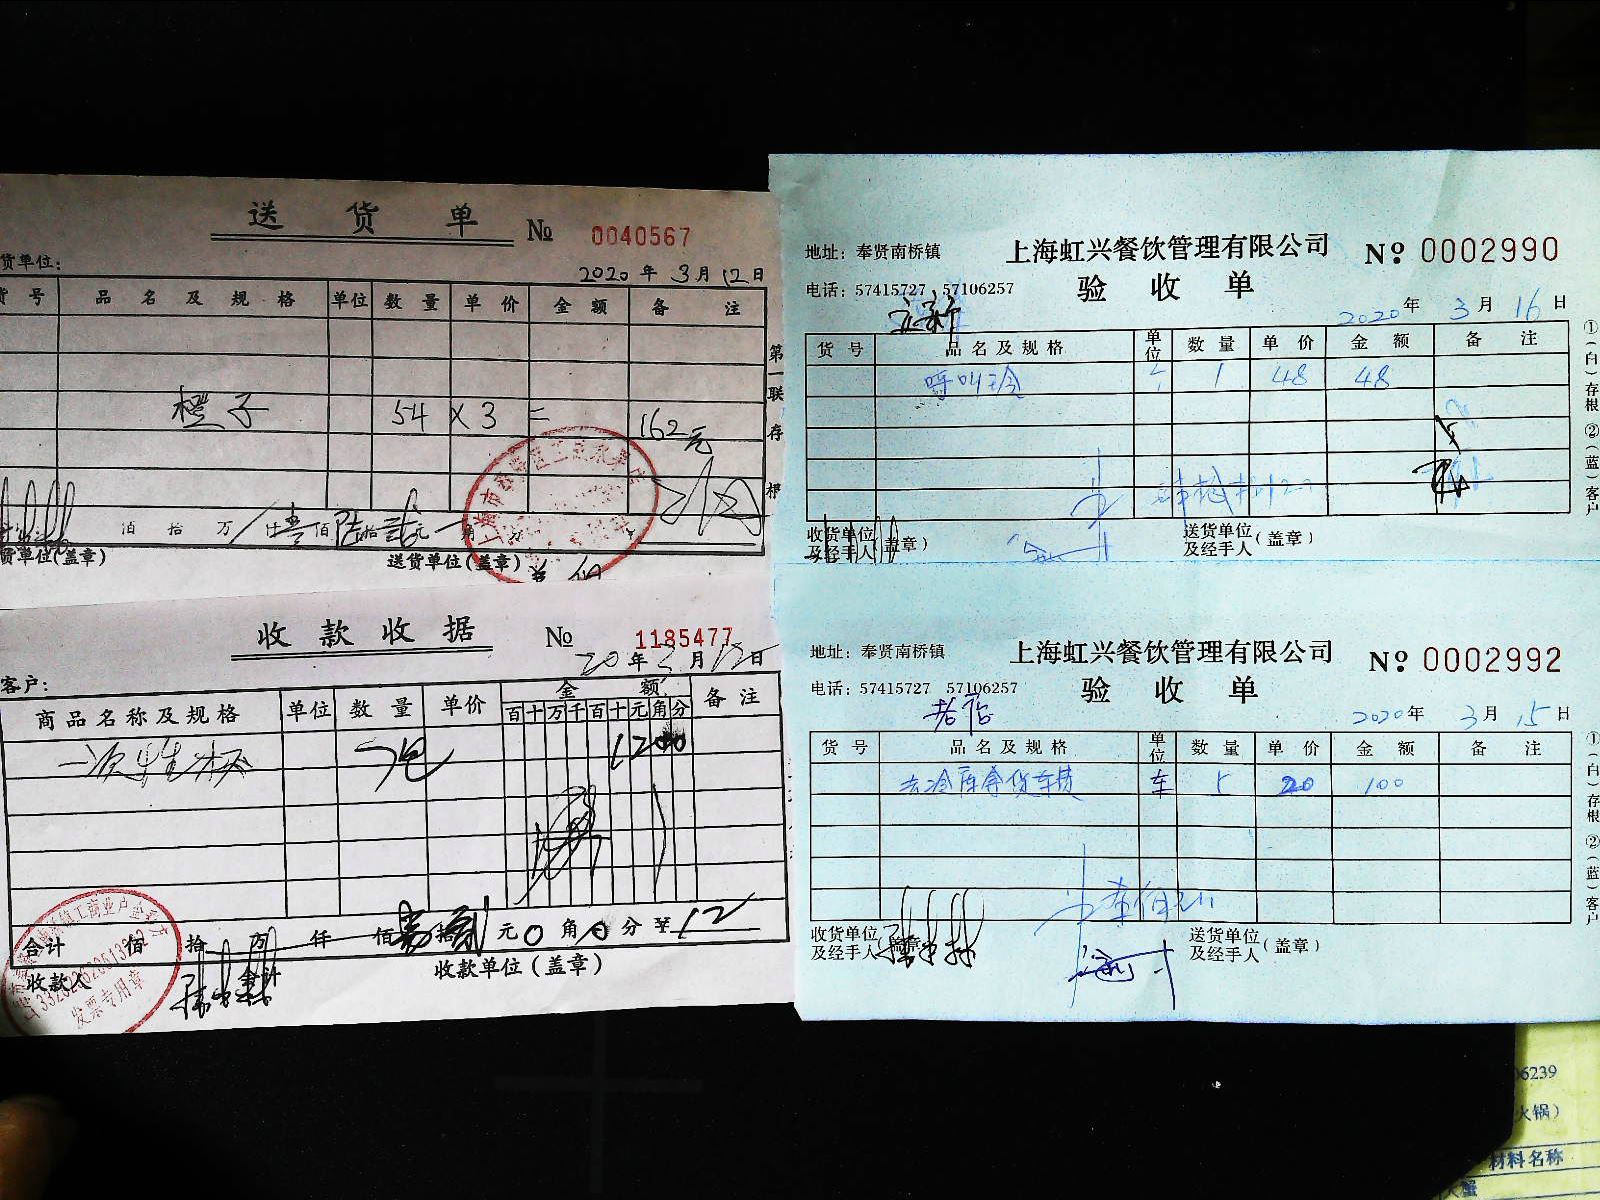 送货单 № 0040567
货单位:
2020年3月12日
货号 品名及规格 单位 数量 单价 金额 备注
橙子 54 × 3 = 162元
佰拾万仟壹佰陆拾贰元角分
货单位(盖章) 送货单位(盖章)
第一联存根
收款收据 № 1185477
20年3月12日
客户:
商品名称及规格 单位 数量 单价 金额 备注
百十万千百十元角分
一次性杯 1200
合计 佰拾万仟佰壹拾贰元0角0分 ¥12
收款人 会计 收款单位(盖章)
发票专用章
地址: 奉贤南桥镇 上海虹兴餐饮管理有限公司 № 0002990
电话: 57415727 57106257 验收单
2020年3月16日
货号 品名及规格 单位 数量 单价 金额 备注
呼叫铃 个 1 48 48
收货单位及经手人(盖章) 送货单位及经手人(盖章)
①(白)存根 ②(蓝)客户
地址: 奉贤南桥镇 上海虹兴餐饮管理有限公司 № 0002992
电话: 57415727 57106257 验收单
2020年3月15日
货号 品名及规格 单位 数量 单价 金额 备注
去冷库拿货车费 车 5 20 100
收货单位及经手人(盖章) 送货单位及经手人(盖章)
①(白)存根 ②(蓝)客户
06239
火锅)
材料名称